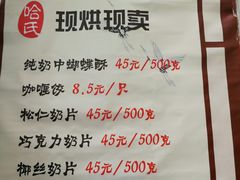 哈氏
现烘现卖
纯奶中蝴蝶酥 45元/500克
咖喱饺 8.5元/只
松仁奶片 45元/500克
巧克力奶片 45元/500克
椰丝奶片 45元/500克